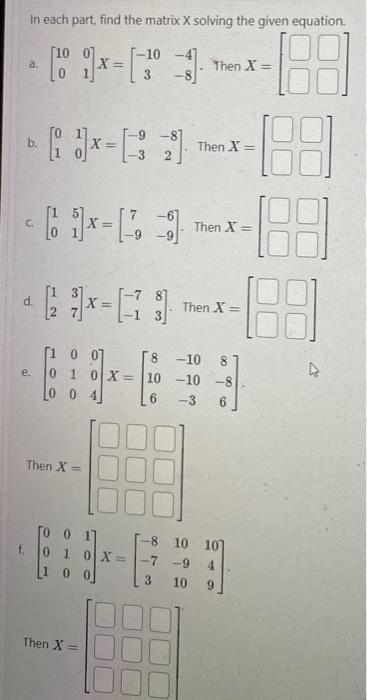 In each part, find the matrix X solving the given equation.
a. [10 0; 0 1] X = [-10 -4; 3 -8]. Then X =
b. [0 1; 1 0] X = [-9 -8; -3 2]. Then X =
c. [1 5; 0 1] X = [7 -6; -9 -9]. Then X =
d. [1 3; 2 7] X = [-7 8; -1 3]. Then X =
e. [1 0 0; 0 1 0; 0 0 4] X = [8 -10 8; 10 -10 -8; 6 -3 6].
Then X =
f. [0 0 1; 0 1 0; 1 0 0] X = [-8 10 10; -7 -9 4; 3 10 9].
Then X =